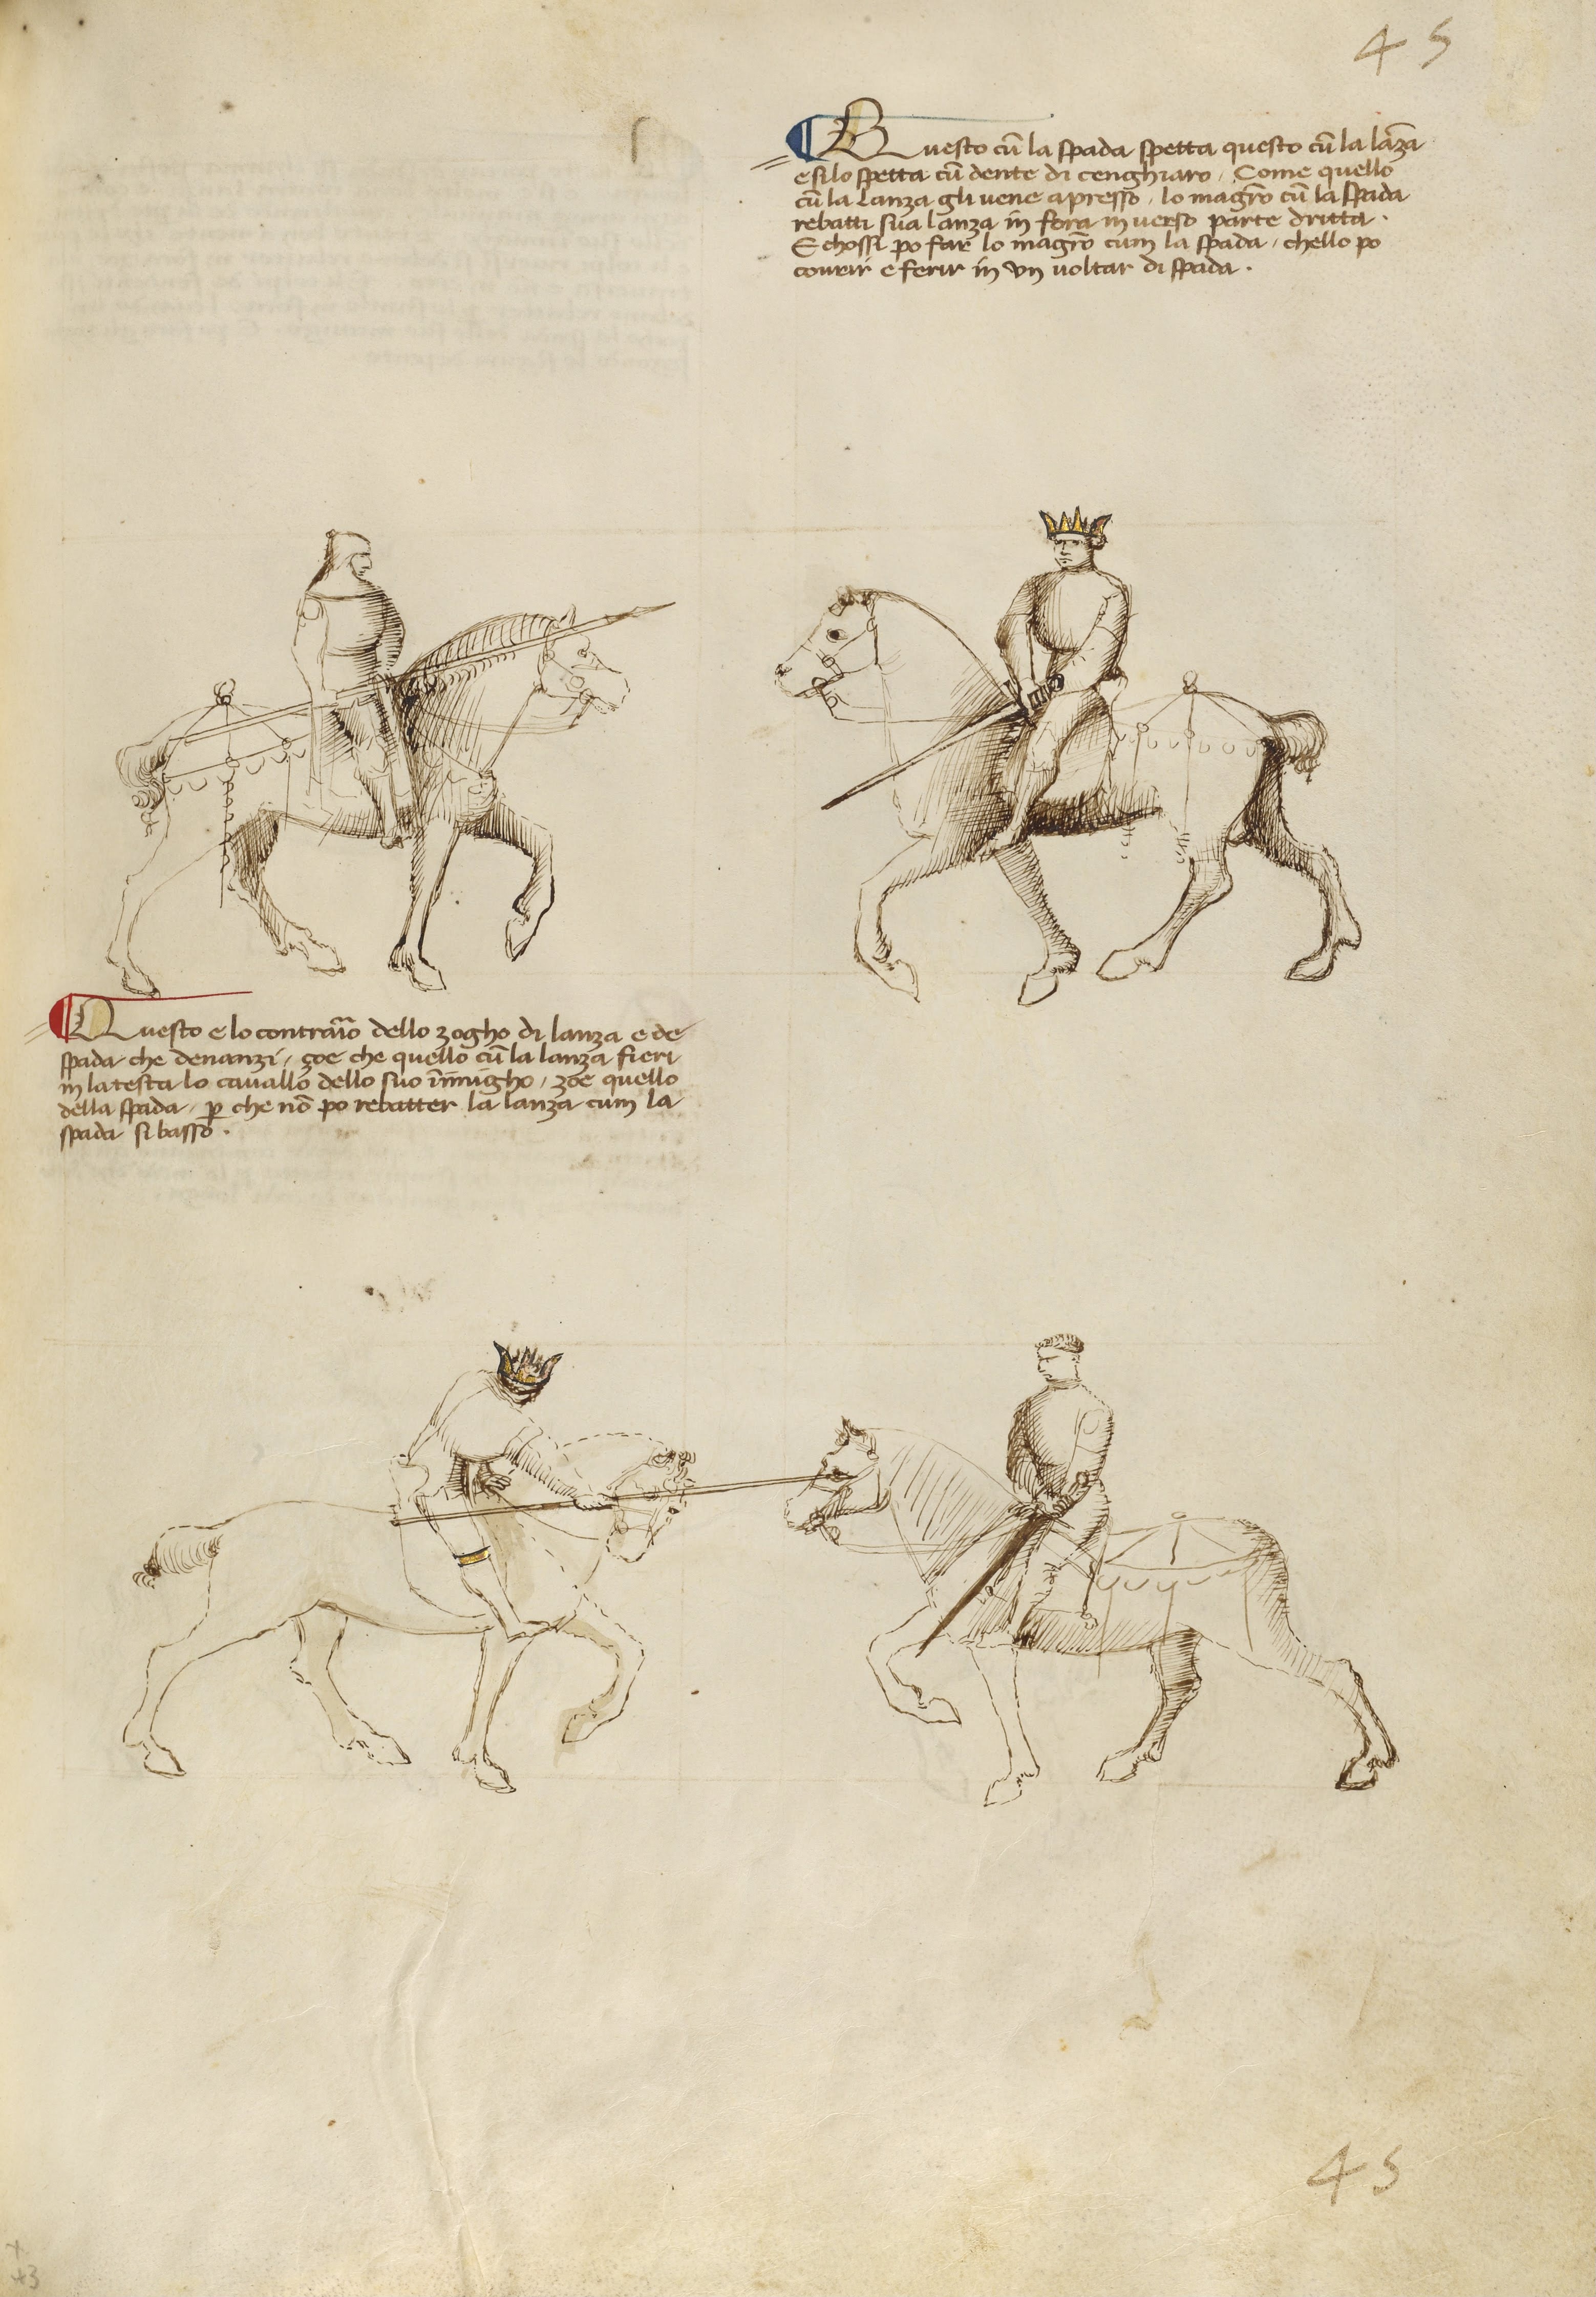 45
Questo cū la spada spetta questo cū la lāza
e silo spetta cū dente di cenghiaro, Come quello
cū la lanza gli uene apresso, lo magr̄o cū la spada
rebatti sua lanza in fora inuerso parte dritta.
E chossi po far lo magr̄o cum la spada, chello po
courir e ferir in vn uoltar di spada.
Questo e lo contrario dello zogho di lanza e de
spada che denanzi, zoe che quello cū la lanza fieri
in la testa lo cauallo dello suo inimigho, zoe quello
della spada, p̱ che nō po rebatter la lanza cum la
spada si basso.
45